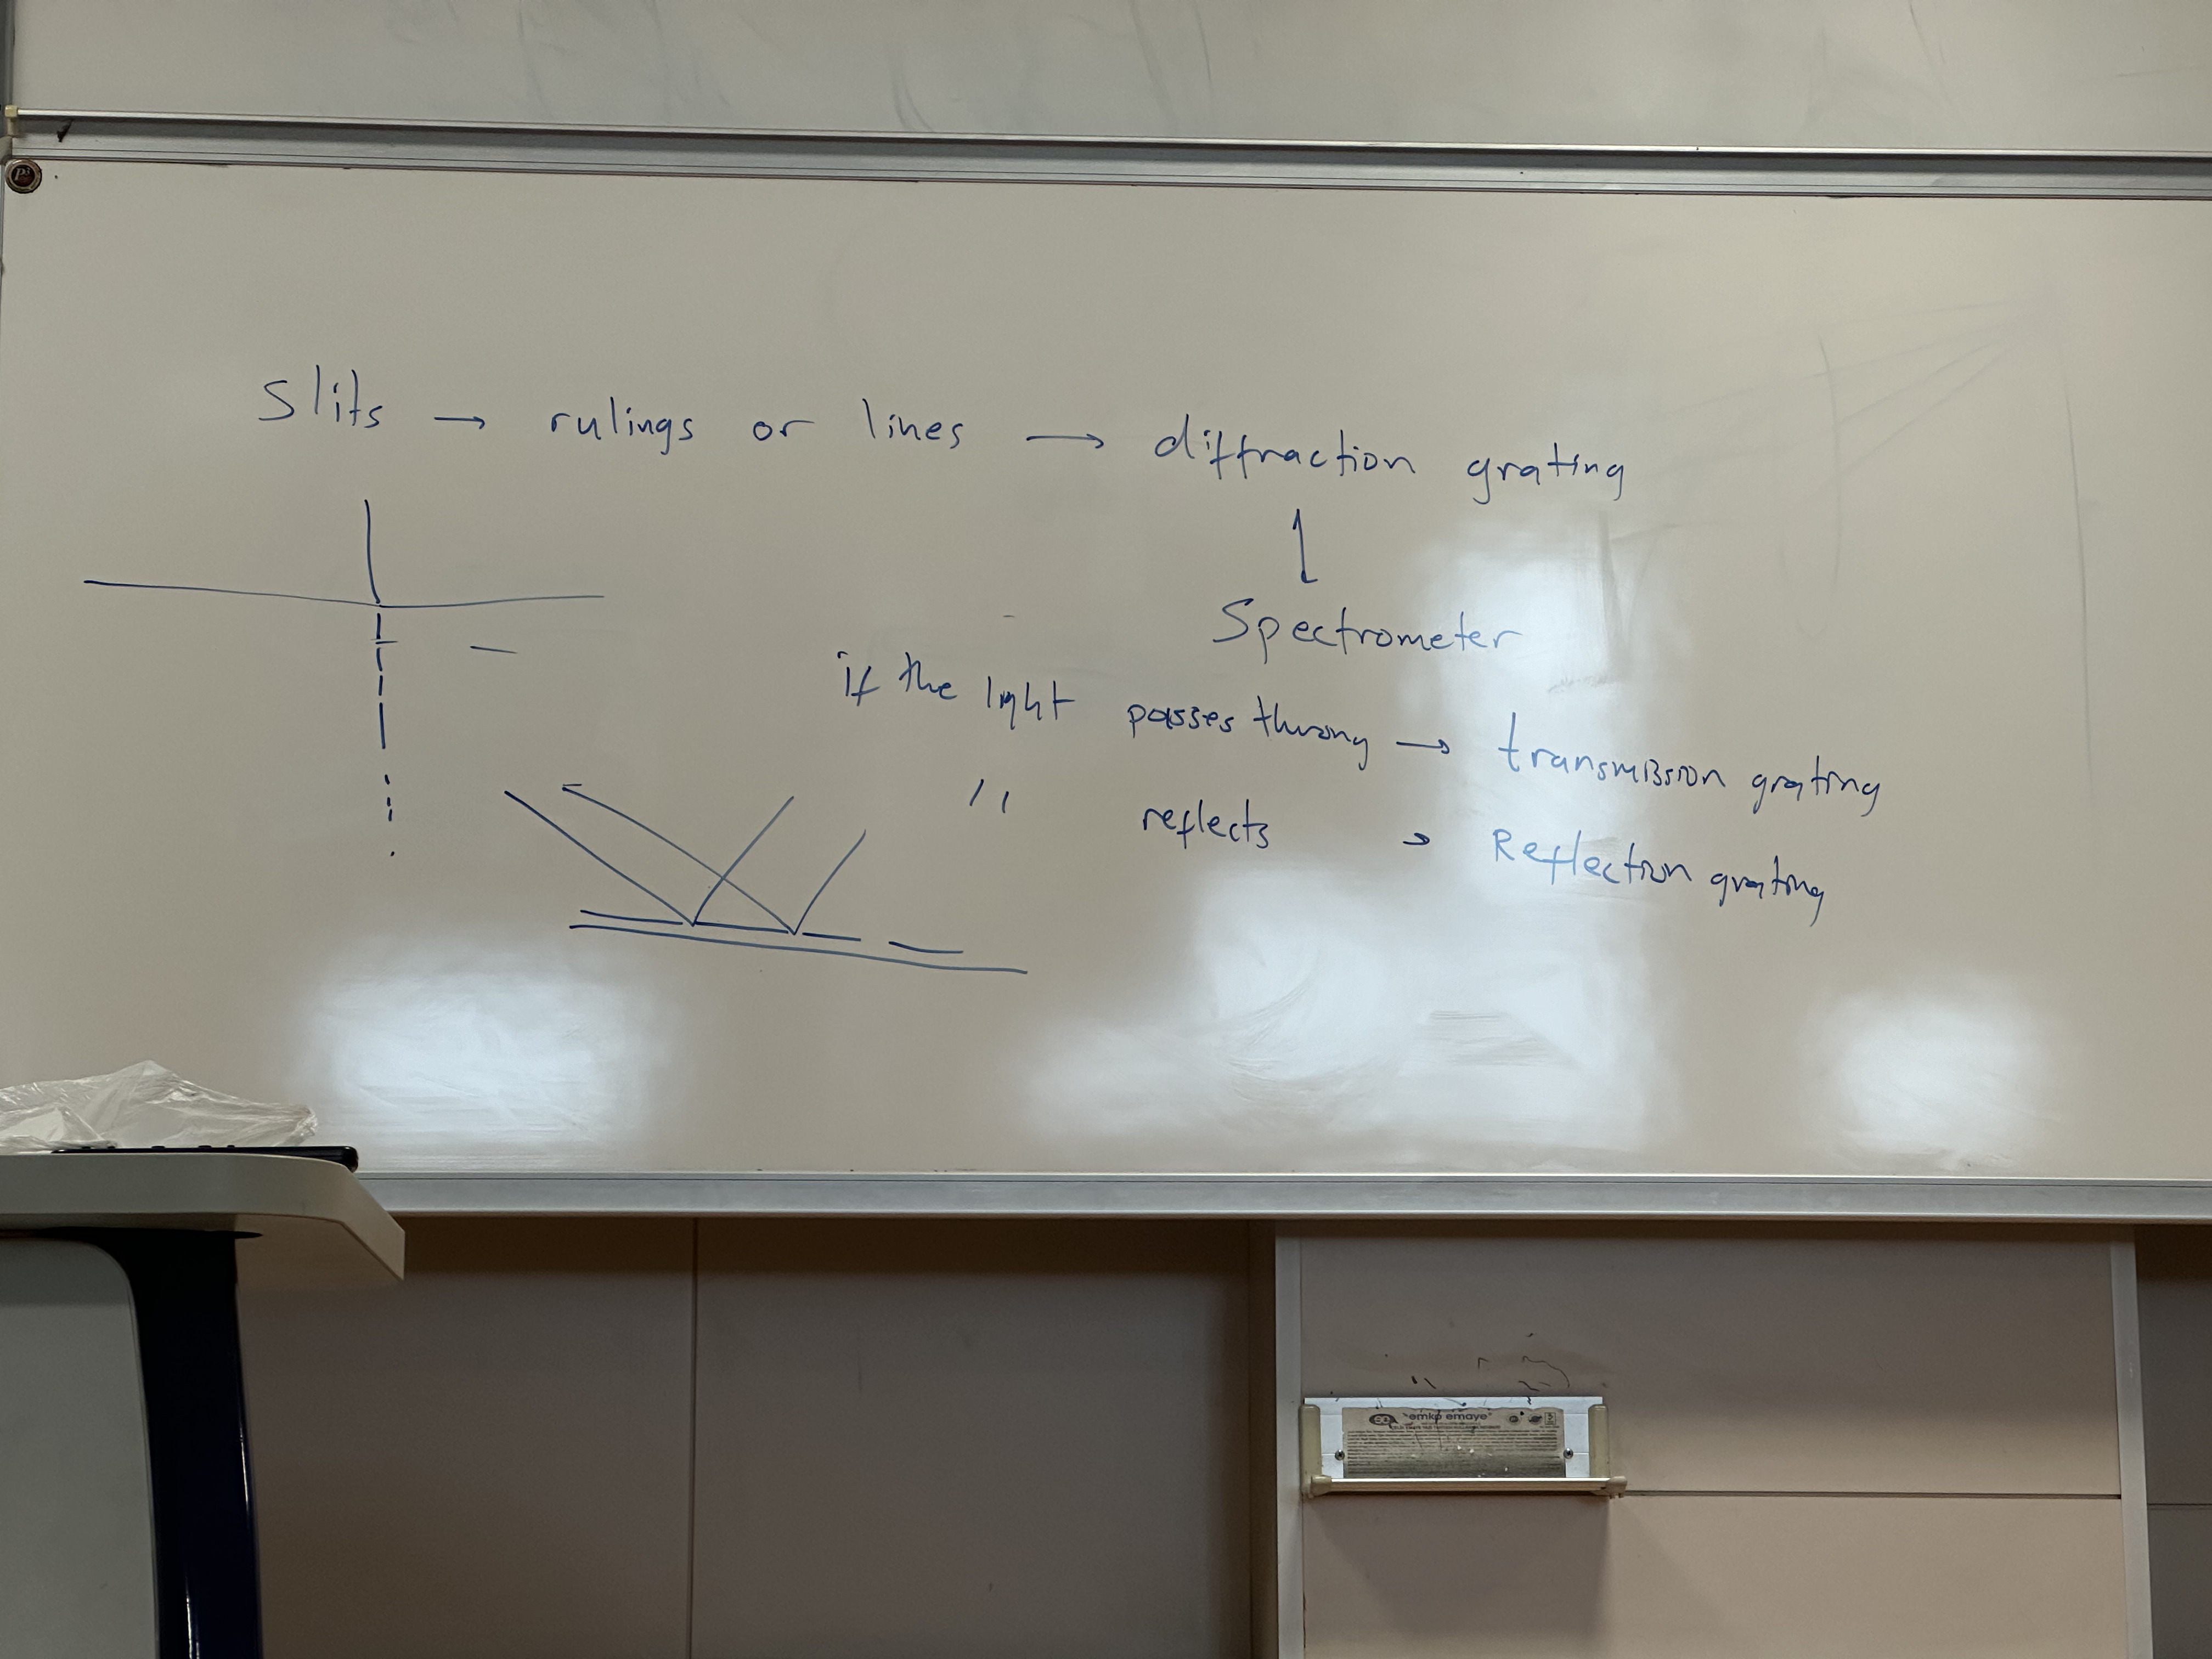 Slits → rulings or lines → diffraction grating
Spectrometer
if the light passes throug → transmission grating
" reflects → Reflection grating
"emko emaye"